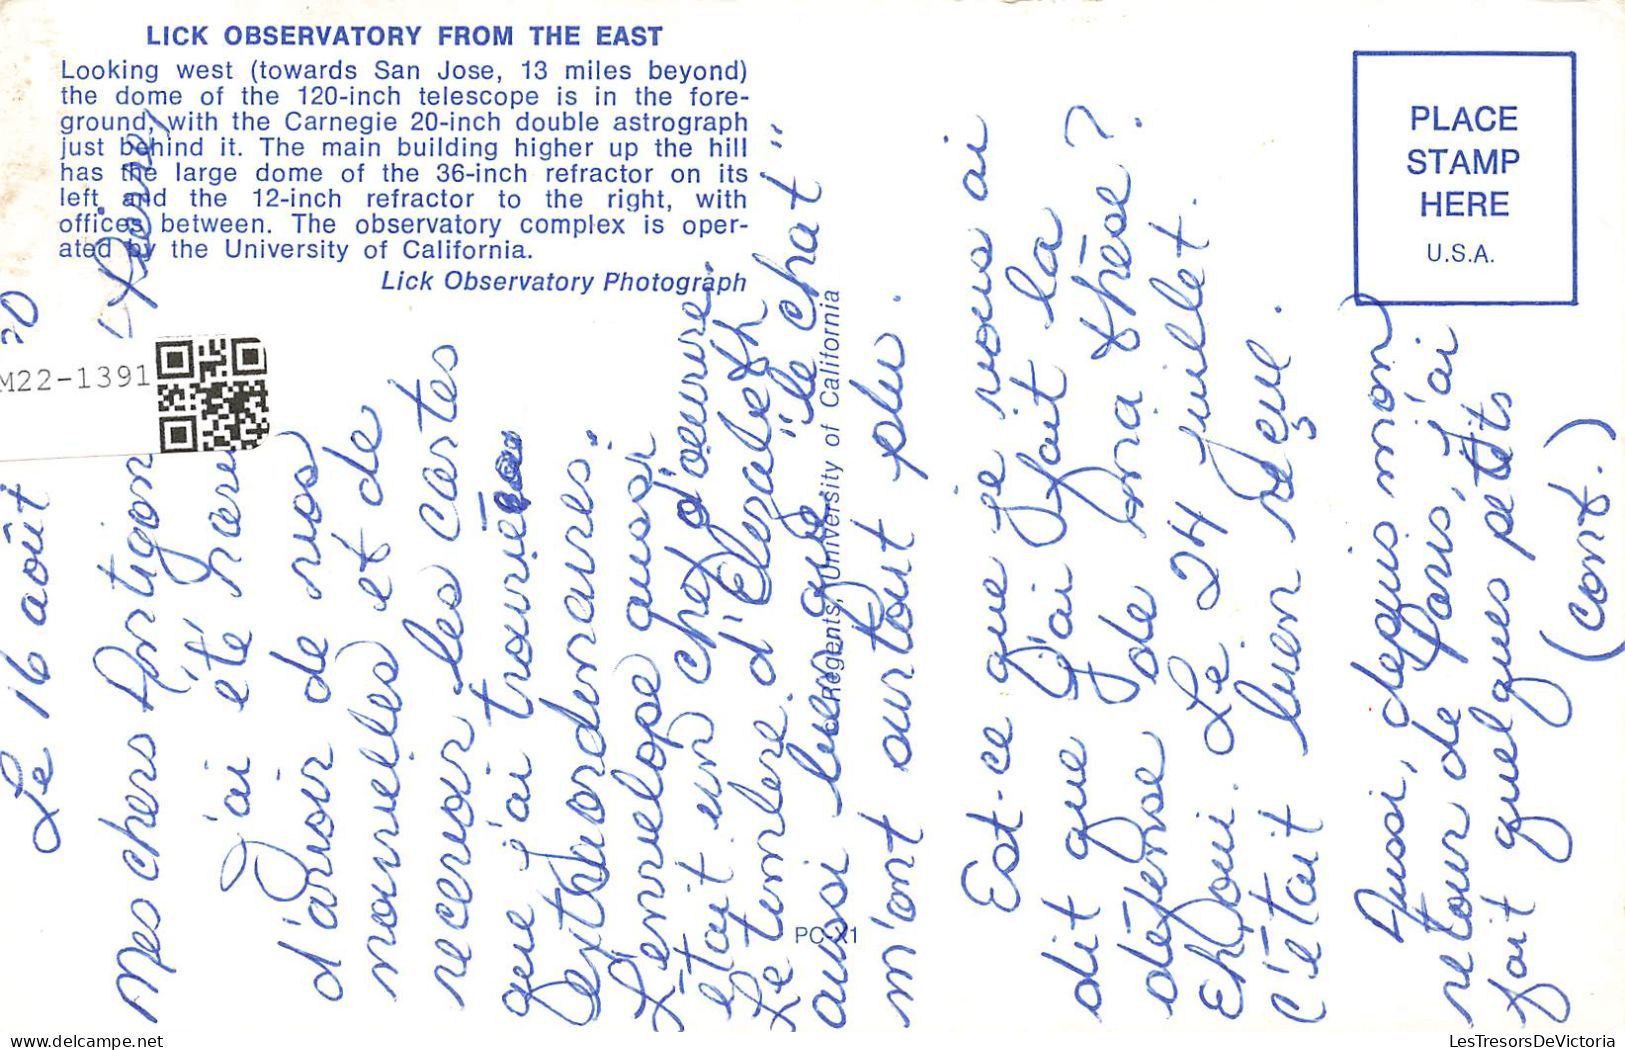 LICK OBSERVATORY FROM THE EAST
Looking west (towards San Jose, 13 miles beyond)
the dome of the 120-inch telescope is in the fore-
ground, with the Carnegie 20-inch double astrograph
just behind it. The main building higher up the hill
has the large dome of the 36-inch refractor on its
left and the 12-inch refractor to the right, with
offices between. The observatory complex is oper-
ated by the University of California.
Lick Observatory Photograph
PLACE
STAMP
HERE
U.S.A.
M22-1391
© Regents, University of California
PC-X1
Le 16 août
Mes chers
J'ai été
d'avoir de vos
nouvelles et de
recevoir les cartes
que j'ai trouvées
extraordinaires.
L'enveloppe aussi
était un chef d'œuvre.
Le timbre d'Elizabeth
aussi bien que "le chat"
m'ont surtout plu.
Est-ce que je vous ai
dit que j'ai fait la
défense de ma thèse?
Eh oui. Le 24 juillet.
C'était bien reçu.
Aussi, depuis mon
retour de Paris, j'ai
fait quelques petits
(cont.)
LesTresorsDeVictoria
delcampe.net